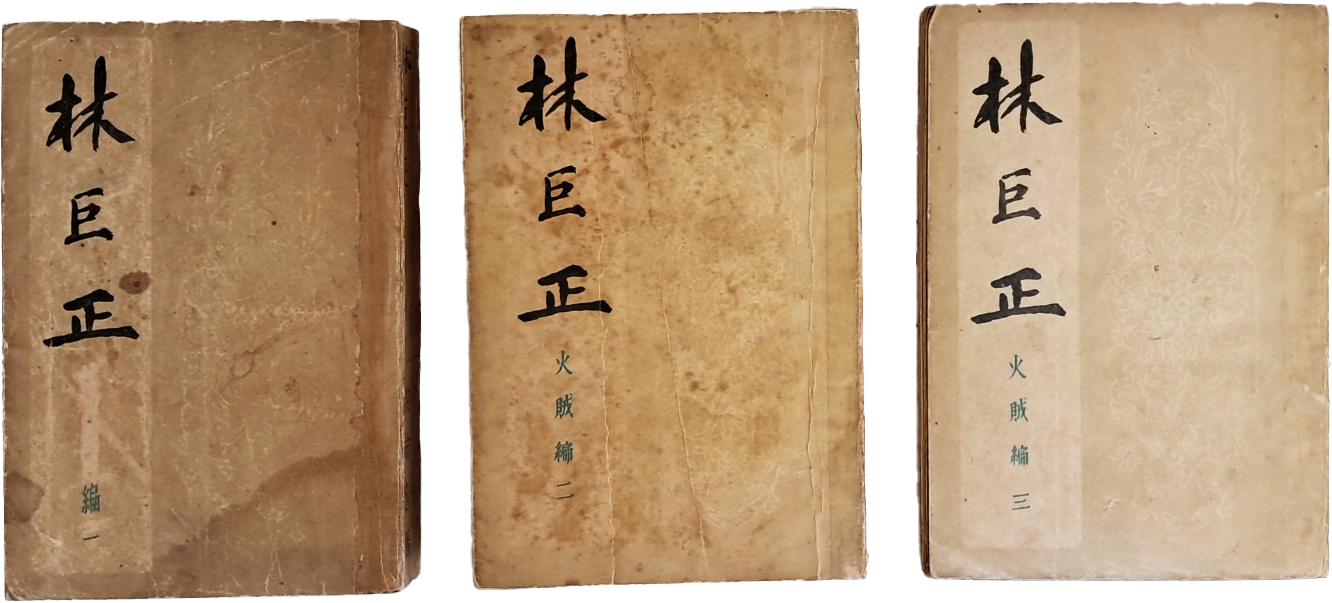 林巨正
編一
林巨正
火賊編二
林巨正
火賊編三